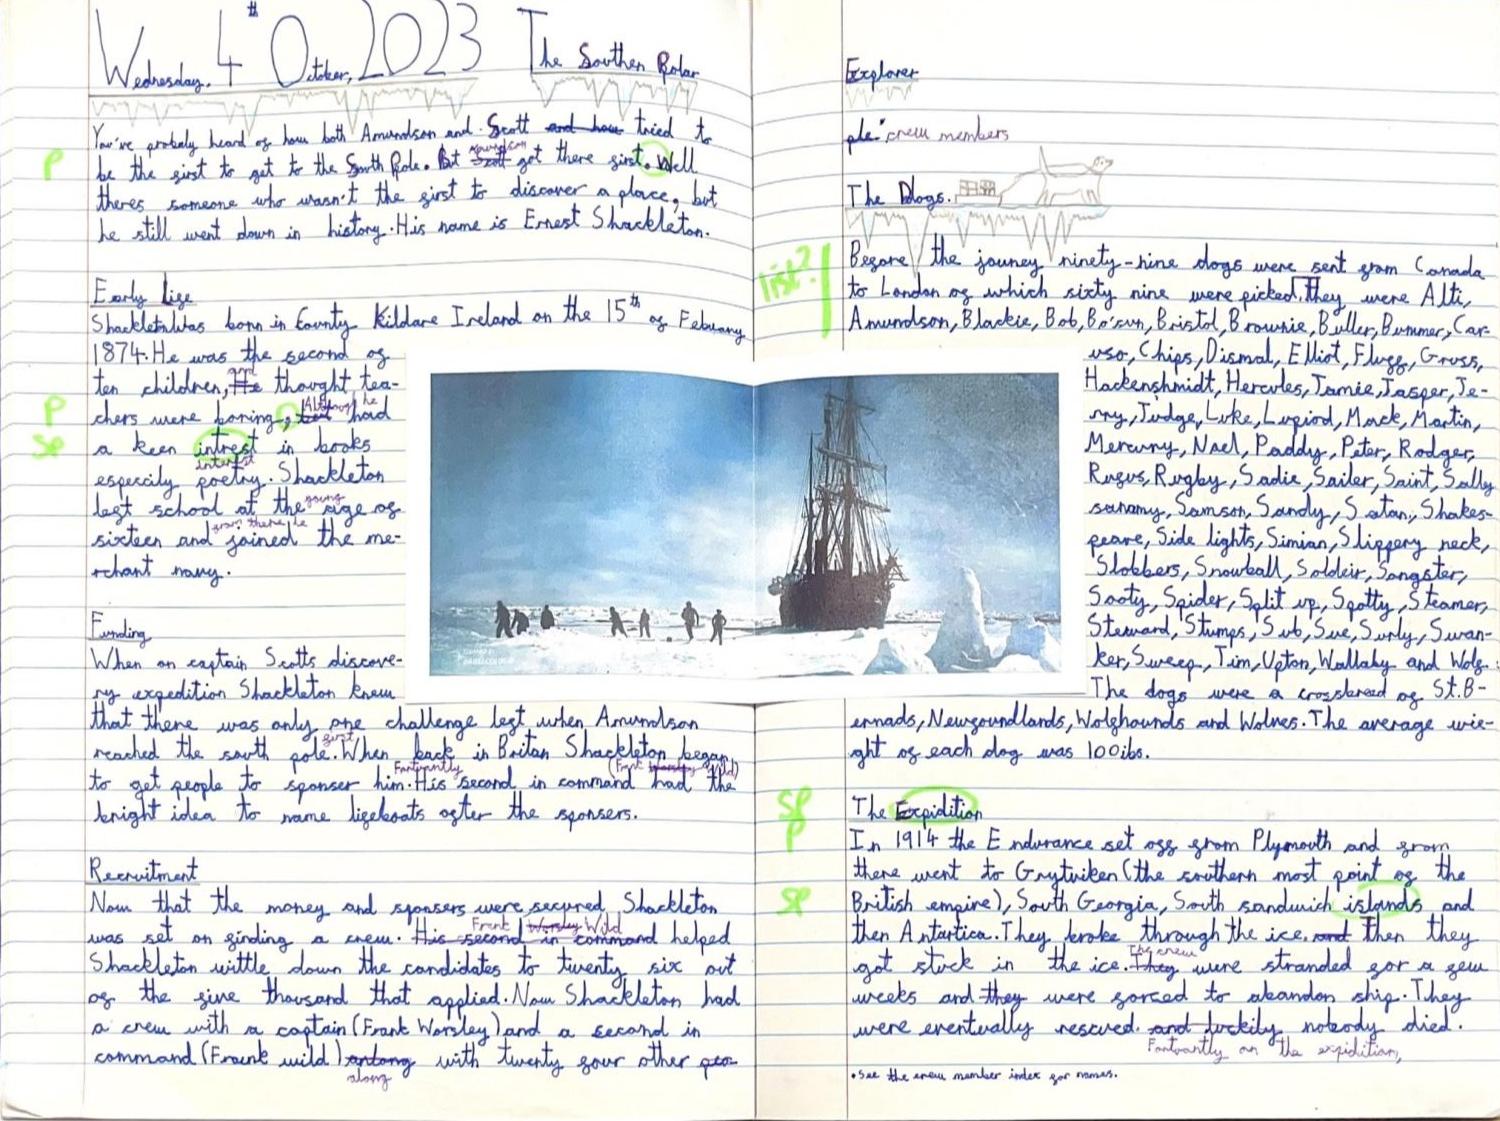 Wednesday, 4th October, 2023 The Southen Polar
You've probaly heard of how both Amundson and Scott and how tried to
P be the first to get to the South Pole. But Scott got there first. Well
theres someone who wasn't the first to discover a place, but
he still went down in history. His name is Ernest Shackleton.
Early Life
Shackleton was born in County Kildare Ireland on the 15th of Febuary
1874. He was the second of
and
ten children, He thought tea-
Although he
P chers were boring, but had
sp a keen intrest in books
interest
especily poetry. Shackleton
young
left school at the age of
from there he
sixteen and joined the me-
rchant navy.
Funding
When on captain Scotts discove-
ry expedition Shackleton knew
that there was only one challenge left when Amundson
first
reached the south pole. When back in Britan Shackleton began
Fortuantly (Frank Worsley Wild)
to get people to sponser him. His second in command had the
bright idea to name lifeboats after the sponsers.
Recruitment
Now that the money and sponsers were secured Shackleton
Frank Worsley Wild
was set on finding a crew. His second in command helped
Shackleton wittle down the candidates to twenty six out
of the five thousand that applied. Now Shackleton had
a crew with a captain (Frank Worsley) and a second in
command (Frank wild) antong with twenty four other peo-
along
Explorer
ple• crew members
The Dogs.
list? Before the jouney ninety-nine dogs were sent from Canada
to London of which sixty nine were picked. They were Alti,
Amundson, Blackie, Bob, Bo'sun, Bristol, Brownie, Buller, Bummer, Car-
uso, Chips, Dismal, Elliot, Fluff, Gruss,
Hackenshmidt, Hercules, Jamie, Jasper, Je-
rry, Judge, Luke, Lupiod, Mack, Martin,
Mercury, Noel, Paddy, Peter, Rodger,
Rufus, Rugby, Sadie, Sailer, Saint, Sally
sammy, Samson, Sandy, Satan, Shakes-
peare, Side lights, Simian, Slippery neck,
Slobbers, Snowball, Soldeir, Songster,
Sooty, Spider, Split up, Spotty, Steamer,
Steward, Stumps, Sub, Sue, Surly, Swan-
ker, Sweep, Tim, Upton, Wallaby and Wolf.
The dogs were a crossbread of St.B-
ernads, Newfoundlands, Wolfhounds and Wolves. The average wie-
ght of each dog was 100ibs.
sp The Expidition
P In 1914 the Endurance set off from Plymouth and from
there went to Grytviken (the southern most point of the
sp British empire), South Georgia, South sandwich islands and
then Antartica. They broke through the ice, and Then they
The crew
got stuck in the ice. They were stranded for a few
weeks and they were forced to abandon ship. They
were eventually rescued. and luckily nobody died.
Fortuantly on the expidition,
•See the crew member index for names.